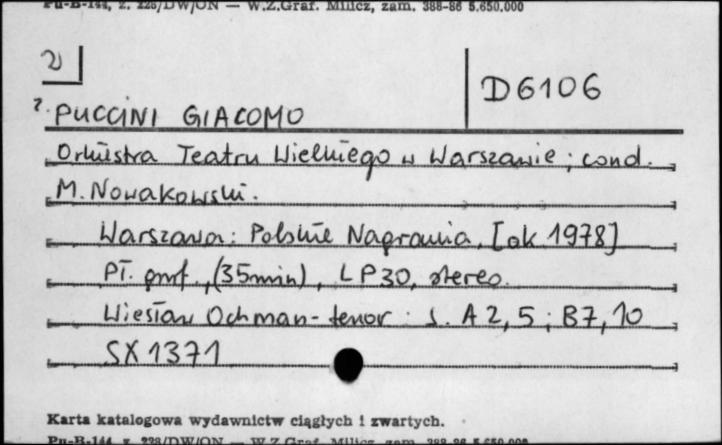 Pu-B-144, z. 228/DW/ON — W.Z.Graf. Milicz, zam. 388-86 5.650.000
2)
D6106
2. PUCCINI GIACOMO
Orkiestra Teatru Wielkiego w Warszawie; cond.
M. Nowakowski.
Warszawa: Polskie Nagrania, [ok 1978]
Pł. gmf., (35min), LP30, stereo.
Wiesław Ochman - tenor: s. A2,5; B7,10
SX 1371
Karta katalogowa wydawnictw ciągłych i zwartych.
Pu-B-144, z. 228/DW/ON — W.Z.Graf. Milicz, zam. 388-86 5.650.000